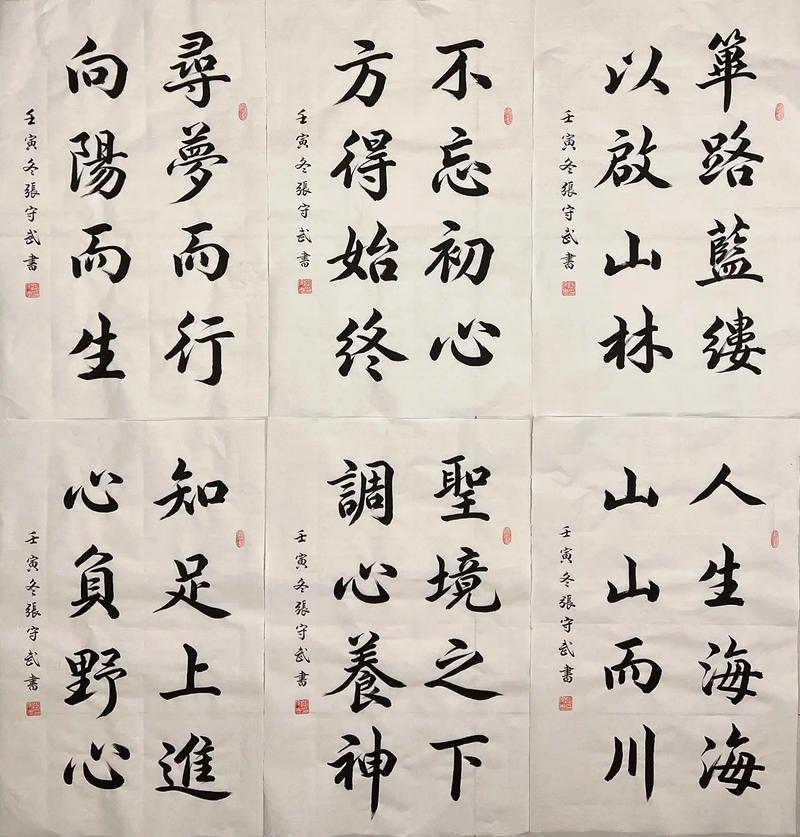 篳路藍縷
以啟山林
壬寅冬張守武書
不忘初心
方得始終
壬寅冬張守武書
尋夢而行
向陽而生
壬寅冬張守武書
人生海海
山山而川
壬寅冬張守武書
聖境之下
調心養神
壬寅冬張守武書
知足上進
心負野心
壬寅冬張守武書